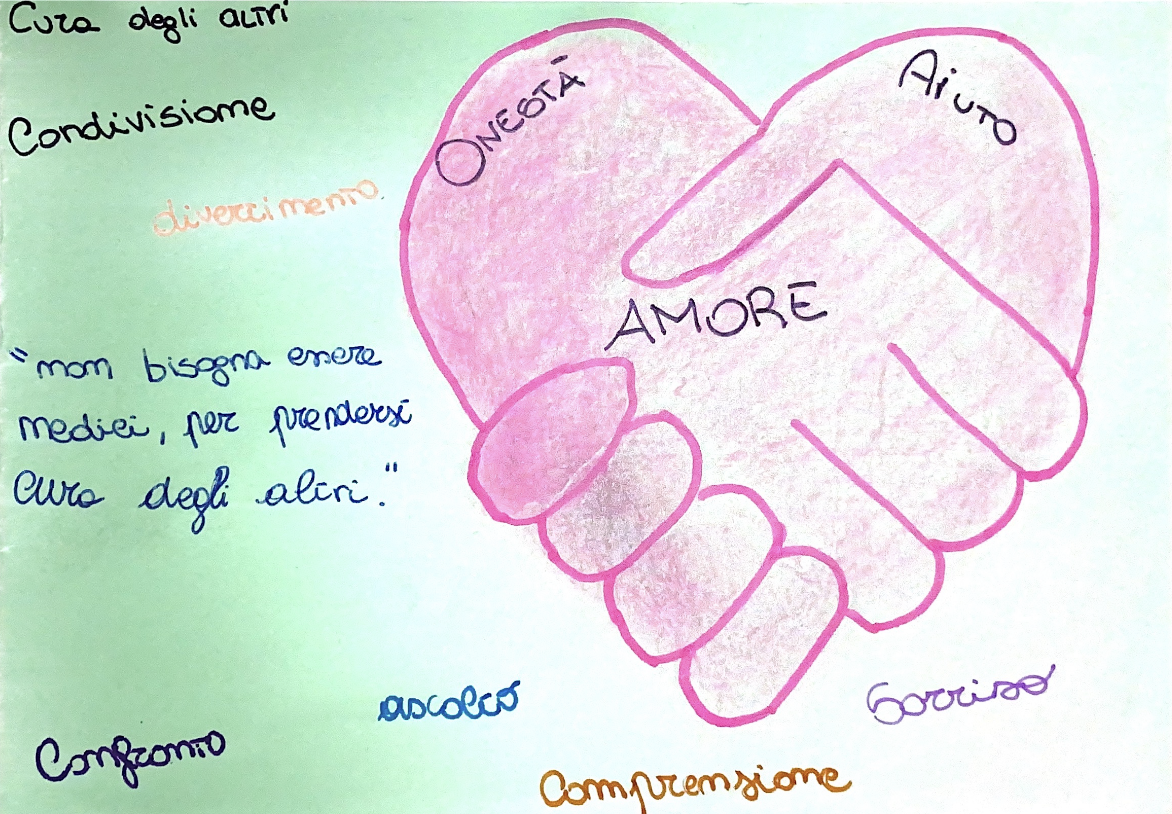 Cura degli altri
Condivisione
divertimento
ONESTÀ
AIUTO
AMORE
"non bisogna essere
medici, per prendersi
cura degli altri."
ascolto
Sorriso
Confronto
Comprensione